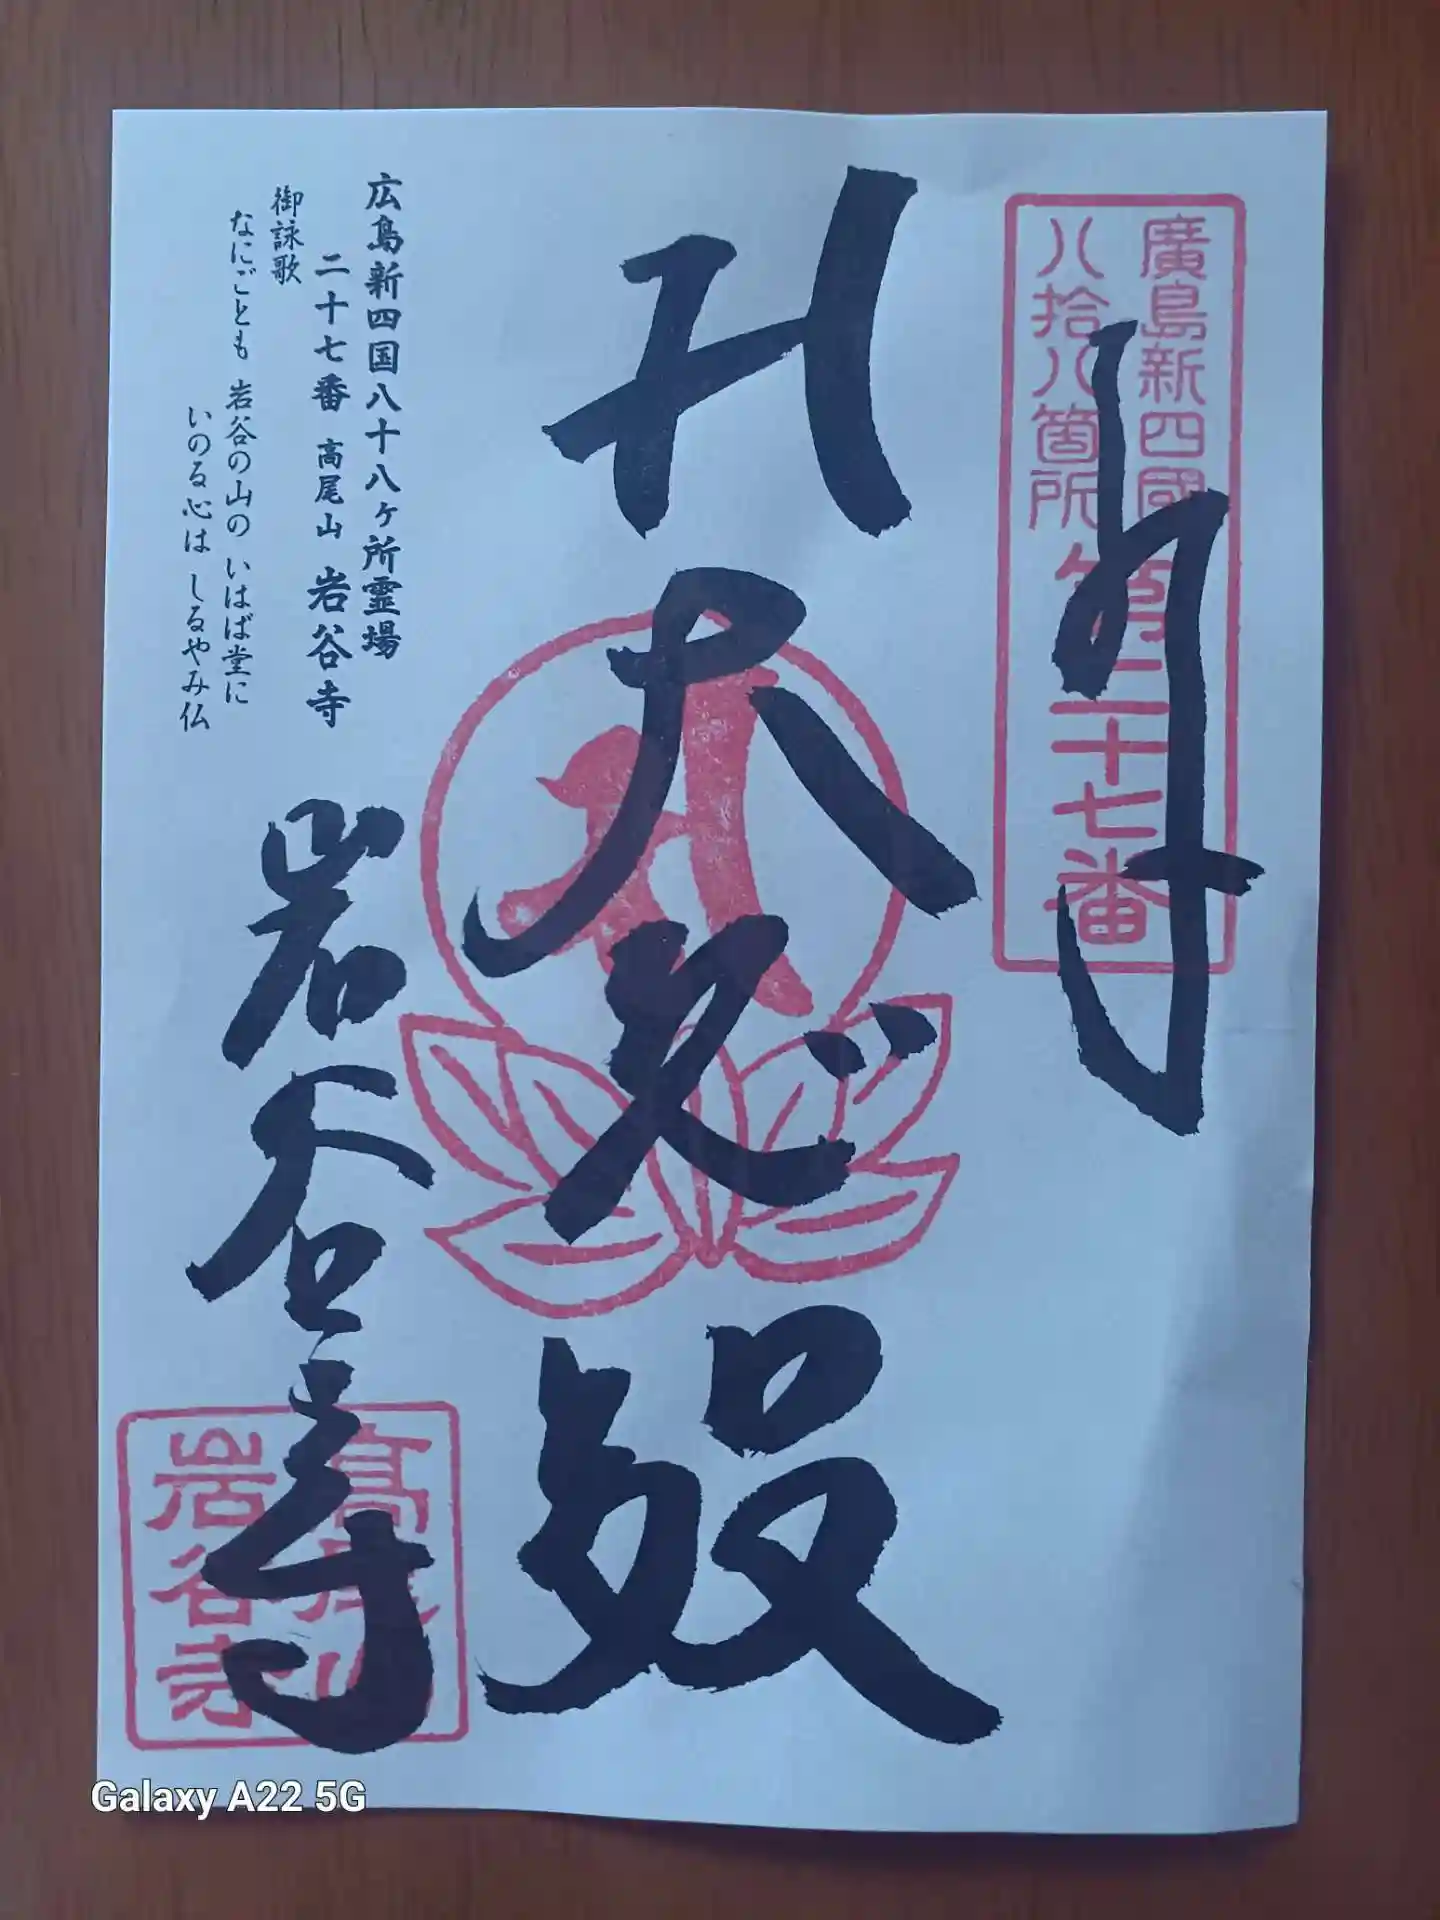 廣島新四國
八拾八箇所
第二十七番
奉拝
大悲殿
岩谷寺
高尾山
岩谷寺
広島新四国八十八ヶ所霊場
二十七番 高尾山 岩谷寺
御詠歌
なにごとも 岩谷の山の いはば堂に
いのる心は しるやみ仏
Galaxy A22 5G